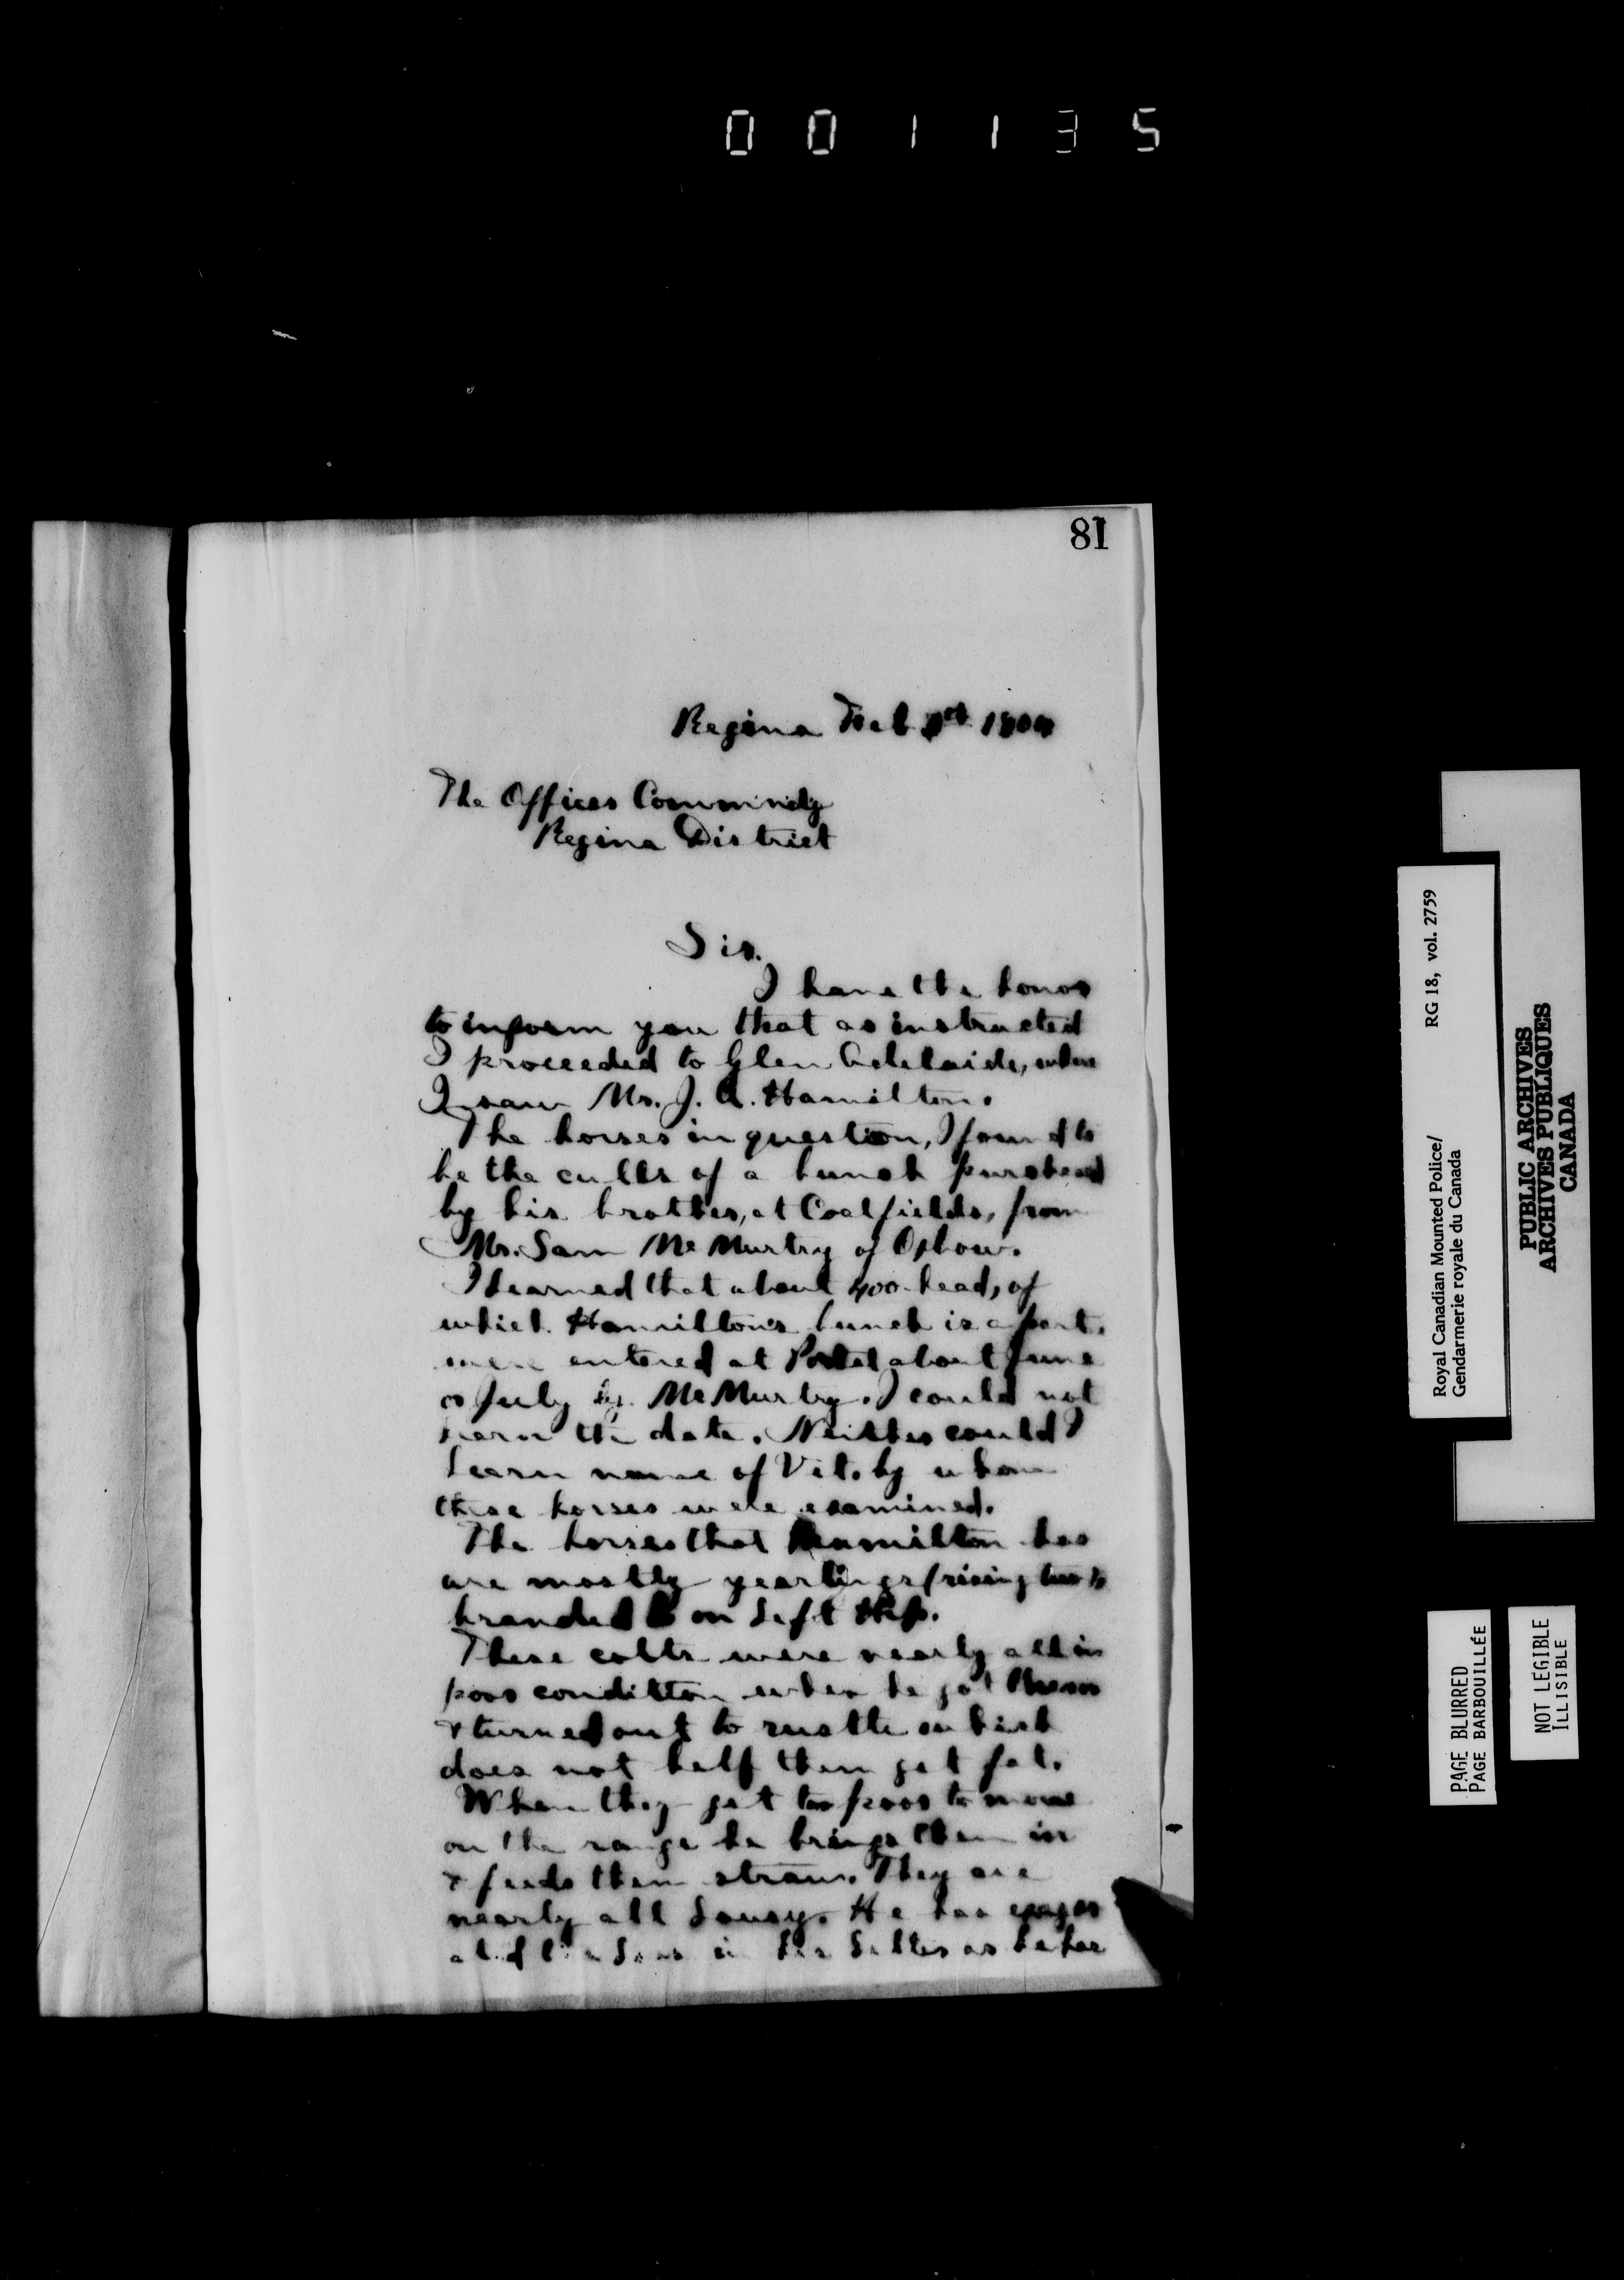 001135
81
Regina Feb 1st 1904
The Officer Commndg
Regina District
Sir.
I have the honor
to inform you that as instructed
I proceeded to Glen Adelaide, where
I saw Mr. J. A. Hamilton.
The horses in question, I found to
be the culls of a bunch purchased
by his brother, at Coalfields, from
Mr. Sam McMurtry of Oxbow.
I learned that about 400 head, of
which Hamilton's bunch is a part,
were entered at Portal about June
or July by McMurtry. I could not
learn the date. Neither could I
learn name of Vet. by whom
these horses were examined.
The horses that Hamilton has
are mostly yearlings (rising two)
branded on left hip.
These colts were nearly all in
poor condition when he got them
& turned out to rustle which
does not help them get fat.
When they get too poor to move
on the range he brings them in
& feeds them straw. They are
nearly all lousy. He has
in his letter as he has
Royal Canadian Mounted Police/ RG 18, vol. 2759
Gendarmerie royale du Canada
PUBLIC ARCHIVES
ARCHIVES PUBLIQUES
CANADA
PAGE BLURRED
PAGE BARBOUILLÉE
NOT LEGIBLE
ILLISIBLE